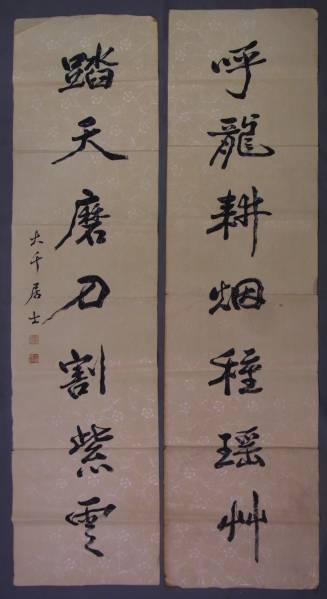 呼龍耕烟種瑶艸
踏天磨刀割紫雲
大千居士